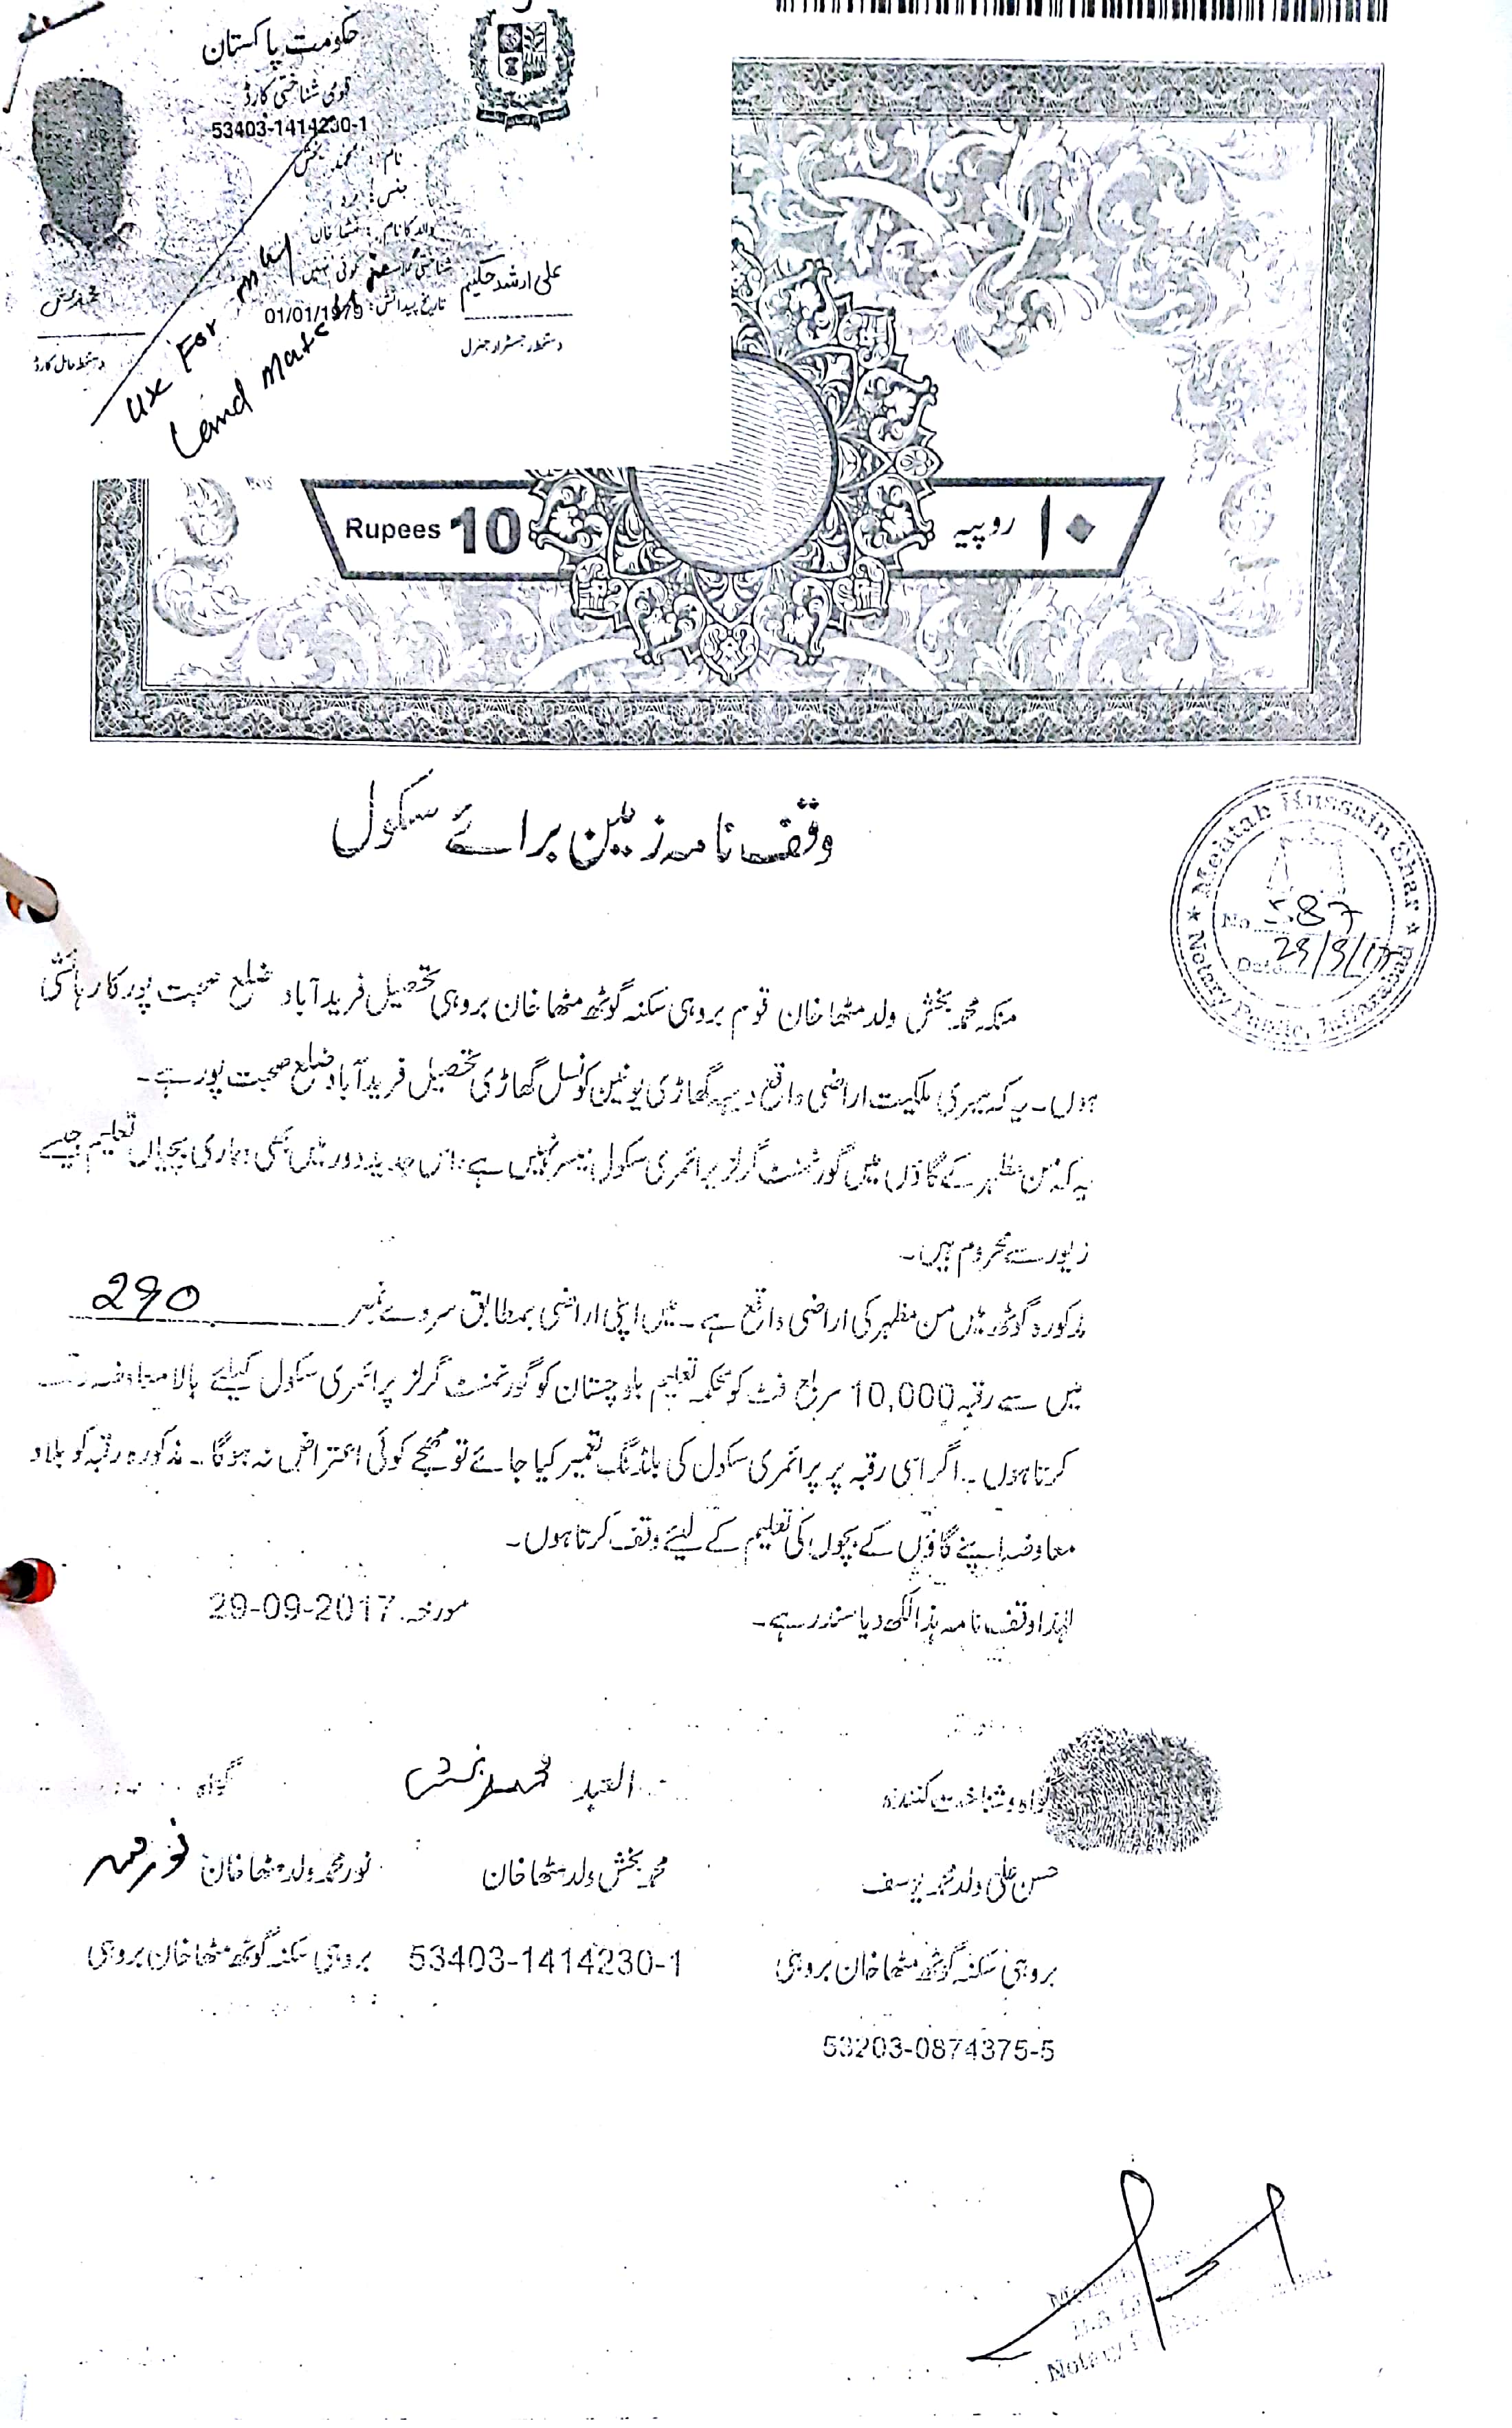 حکومت پاکستان
قومی شناختی کارڈ
53403-1414230-1
نام: محمد بخش
جنس: مرد
والد کا نام: مٹھا خان
شناختی کوئی نہیں
تاریخ پیدائش: 01/01/1979
علی ارشد حکیم
دستخط رجسٹرار جنرل
محمد بخش
دستخط حامل کارڈ
use For only
Land
Rupees 10
۱۰ روپیہ
وقف نامہ زمین برائے سکول
Mehtab Hussain Shar
Notary Public,
No 587
Date 29/9/17
منکہ محمد بخش ولد مٹھا خان قوم بروہی سکنہ گوٹھ مٹھا خان بروہی تحصیل فرید آباد ضلع صحبت پور کا رہائشی
ہوں۔ یہ کہ میری ملکیت اراضی واقع دیہہ گھاڑی یونین کونسل گھاڑی تحصیل فرید آباد ضلع صحبت پور ہے۔
یہ کہ من مظہر کے گاؤں میں گورنمنٹ گرلز پرائمری سکول میسر نہیں ہے۔ اس جدید دور میں بھی ہماری بچیاں تعلیم جیسے
زیور سے محروم ہیں۔
مذکورہ گوٹھ میں من مظہر کی اراضی واقع ہے۔ میں اپنی اراضی بمطابق سروے نمبر 290
میں سے رقبہ 10,000 مربع فٹ کو محکمہ تعلیم بلوچستان کو گورنمنٹ گرلز پرائمری سکول کیلئے بلا معاوضہ وقف
کرتا ہوں۔ اگر اسی رقبہ پر پرائمری سکول کی بلڈنگ تعمیر کیا جائے تو مجھے کوئی اعتراض نہ ہوگا۔ مذکورہ رقبہ کو بلا و
معاوضہ اپنے گاؤں کے بچوں کی تعلیم کے لیئے وقف کرتا ہوں۔
لہٰذا وقف نامہ ہذا لکھ دیا سند رہے۔
مورخہ 29-09-2017
گواہ و شناخت کنندہ
حسن علی ولد محمد یوسف
بروہی سکنہ گوٹھ مٹھا خان بروہی
53203-0874375-5
العبد محمد بخش
محمد بخش ولد مٹھا خان
53403-1414230-1
گواہ
نور محمد ولد مٹھا خان نور محمد
بروہی سکنہ گوٹھ مٹھا خان بروہی
Notary